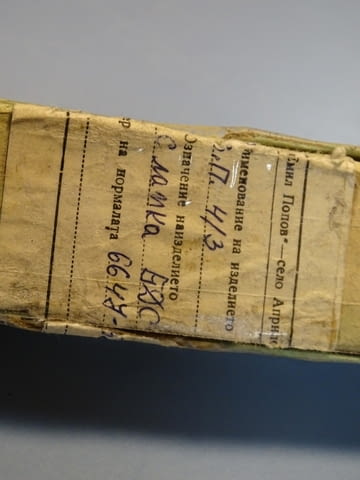 Емил Попов"—село Април
именование на изделието
В.П. 4/3
Означение наизделието
С лапка БДС
ер на нормалата 6649-